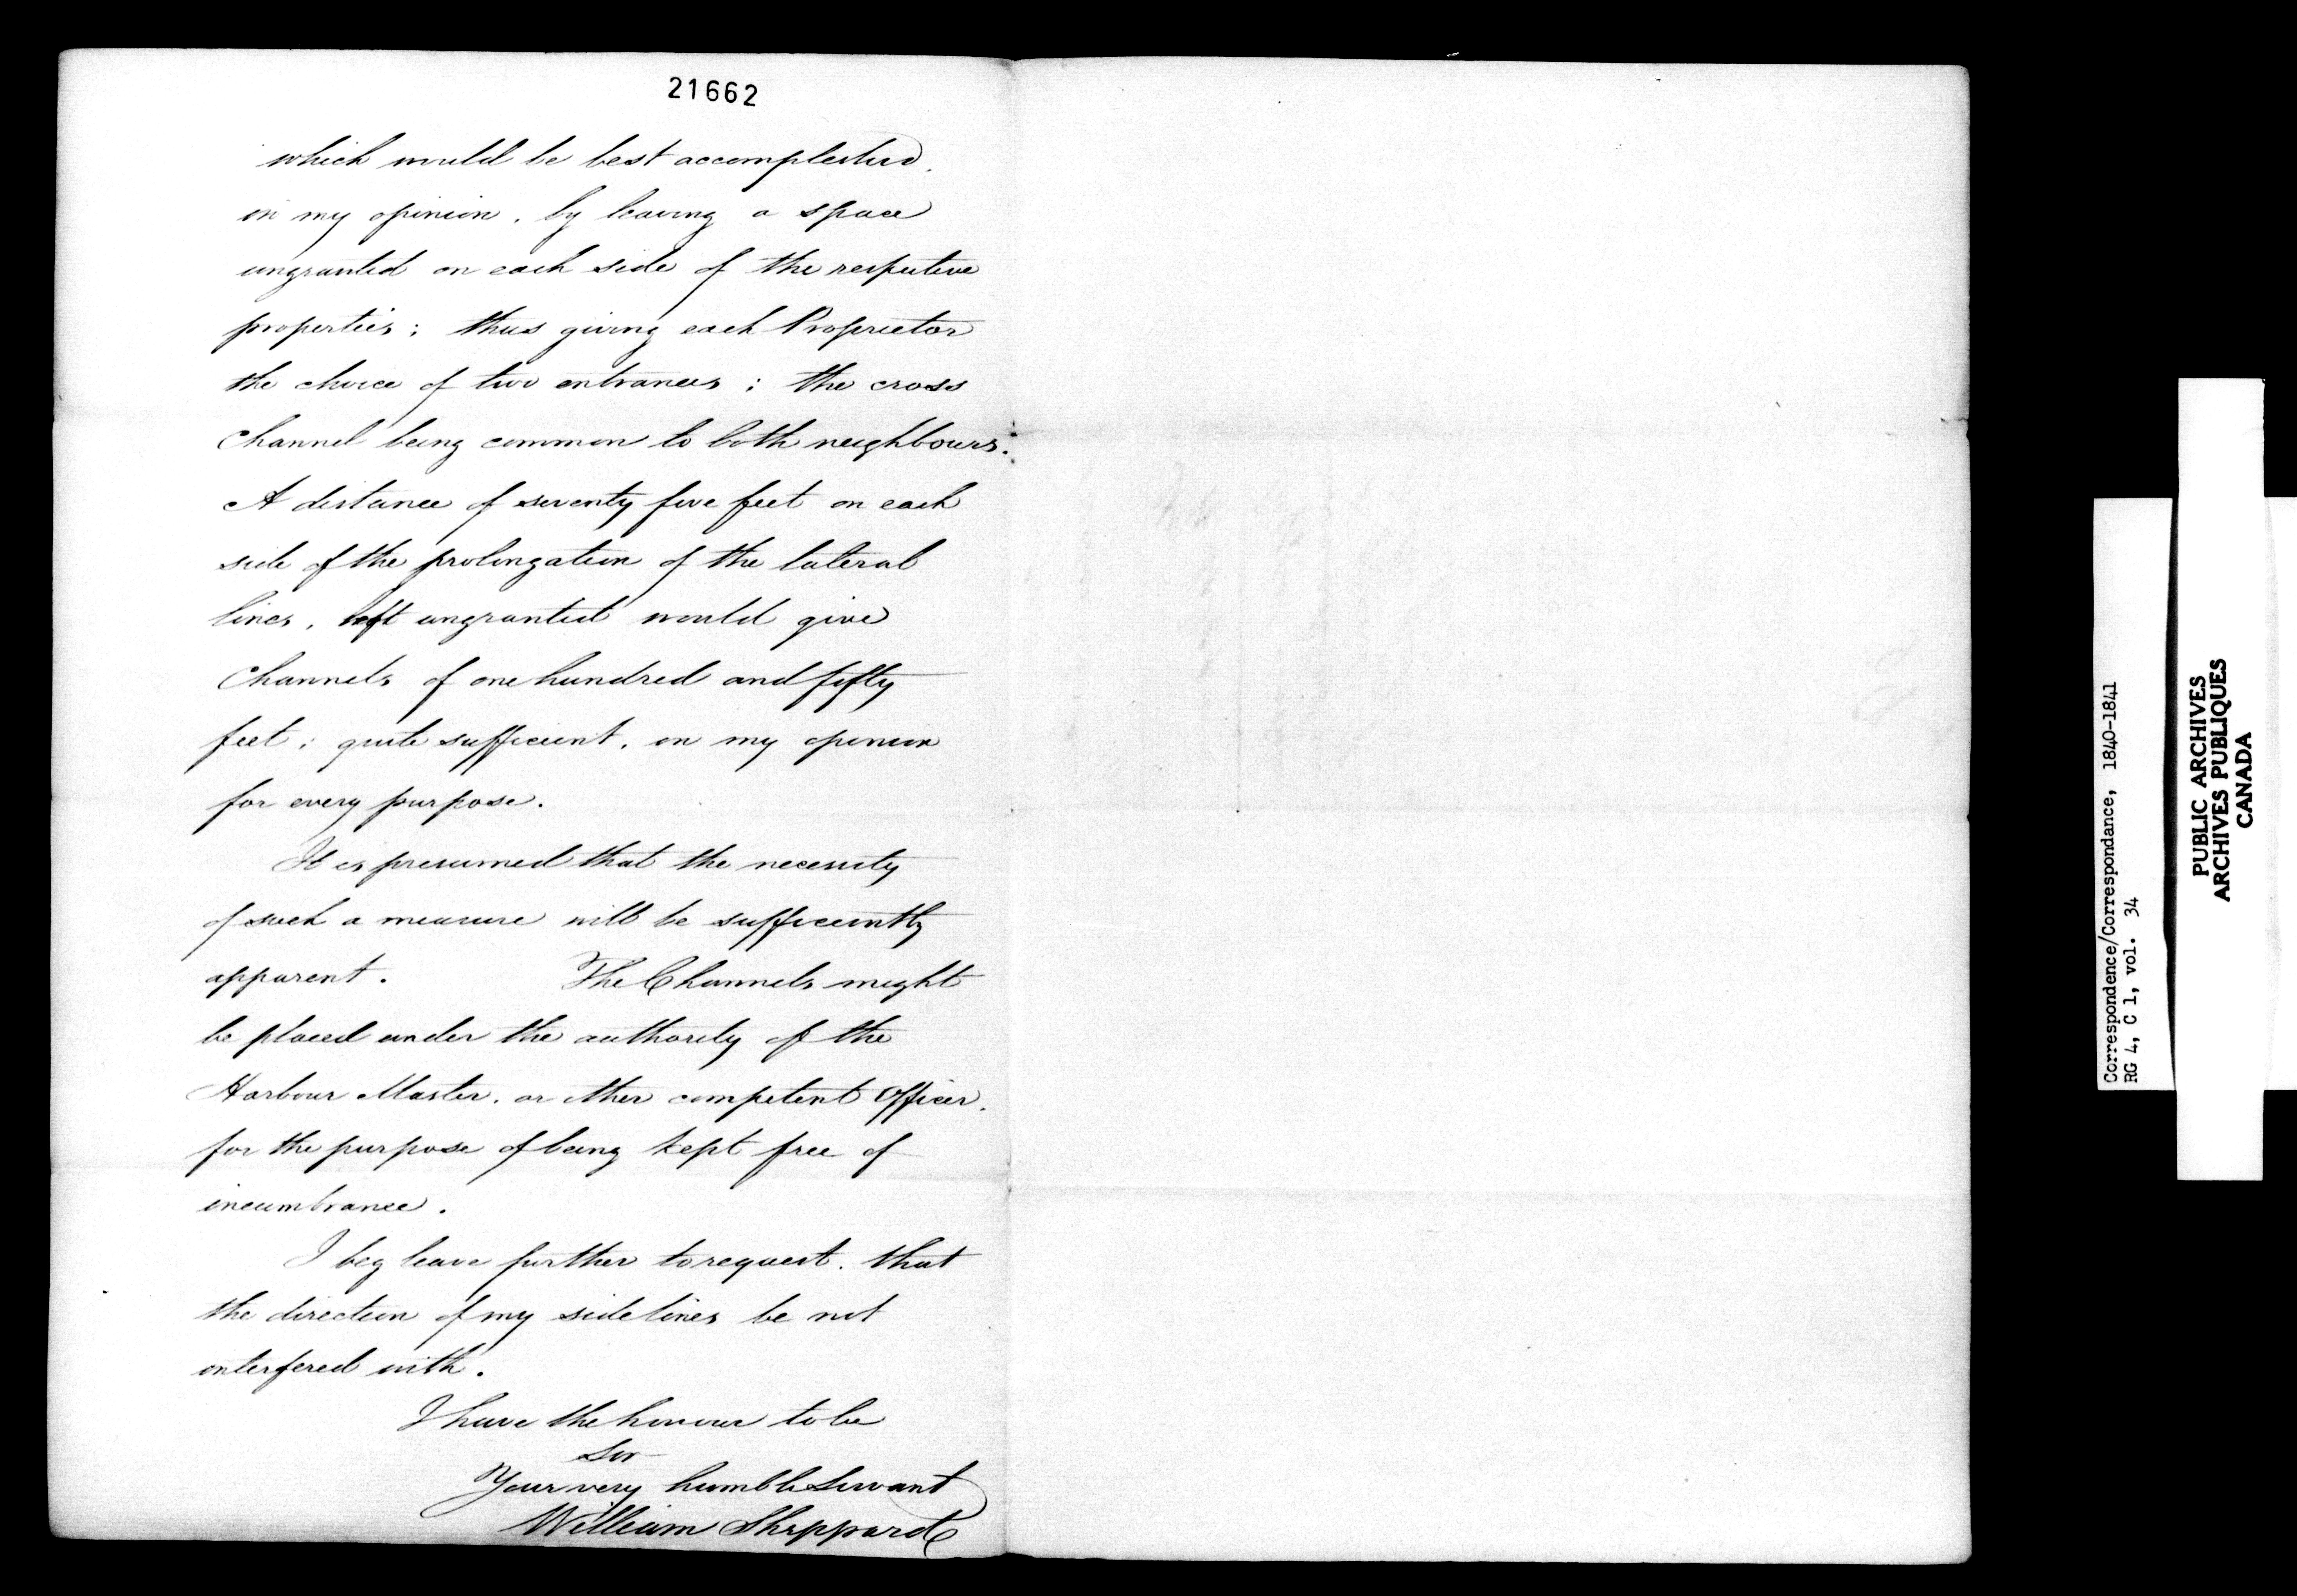 21662
which would be best accomplished,
in my opinion, by leaving a space
ungranted on each side of the respective
properties; thus giving each Proprietor
the choice of two entrances; the cross
Channel being common to both neighbours.
A distance of seventy five feet on each
side of the prolongation of the lateral
lines, left ungranted would give
Channels of one hundred and fifty
feet; quite sufficient, in my opinion
for every purpose.
It is presumed that the necessity
of such a measure will be sufficiently
apparent. The Channels might
be placed under the authority of the
Harbour Master, or other competent Officer,
for the purpose of being kept free of
incumbrance.
I beg leave further to request, that
the direction of my side lines be not
interfered with.
I have the honour to be
Sir
Your very humble Servant
William Sheppard
Correspondence/Correspondance, 1840-1841
RG 4, C 1, vol. 34
PUBLIC ARCHIVES
ARCHIVES PUBLIQUES
CANADA